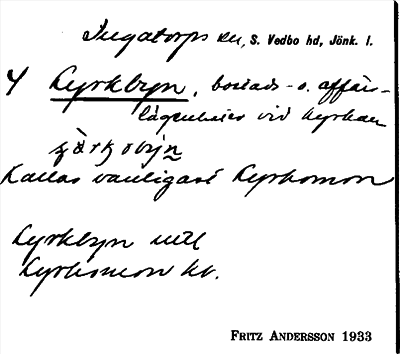 Ingatorps sn, S. Vedbo hd, Jönk. l.
4 Kyrkbyn, bostads- o. affärs-
lägenheter vid kyrkan
Kallas vanligast Kyrkomon
Kyrkbyn utl
Kyrkomon kt.
FRITZ ANDERSSON 1933